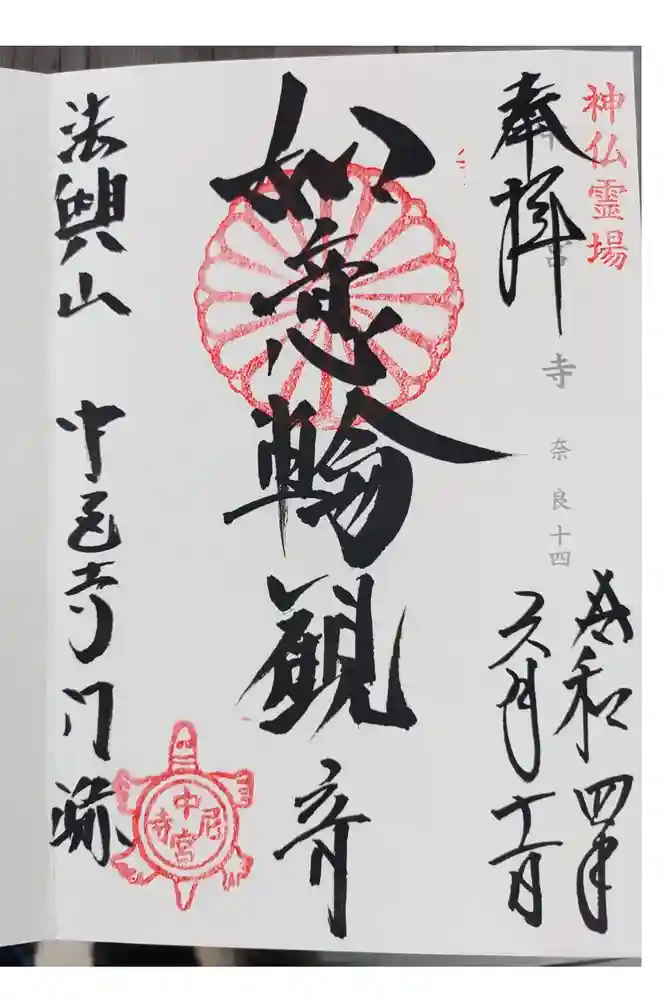 神仏霊場
奉拝
中宮寺 奈良十四
令和四年
六月
如意輪觀音
法興山 中宮寺門跡
中宮尼寺